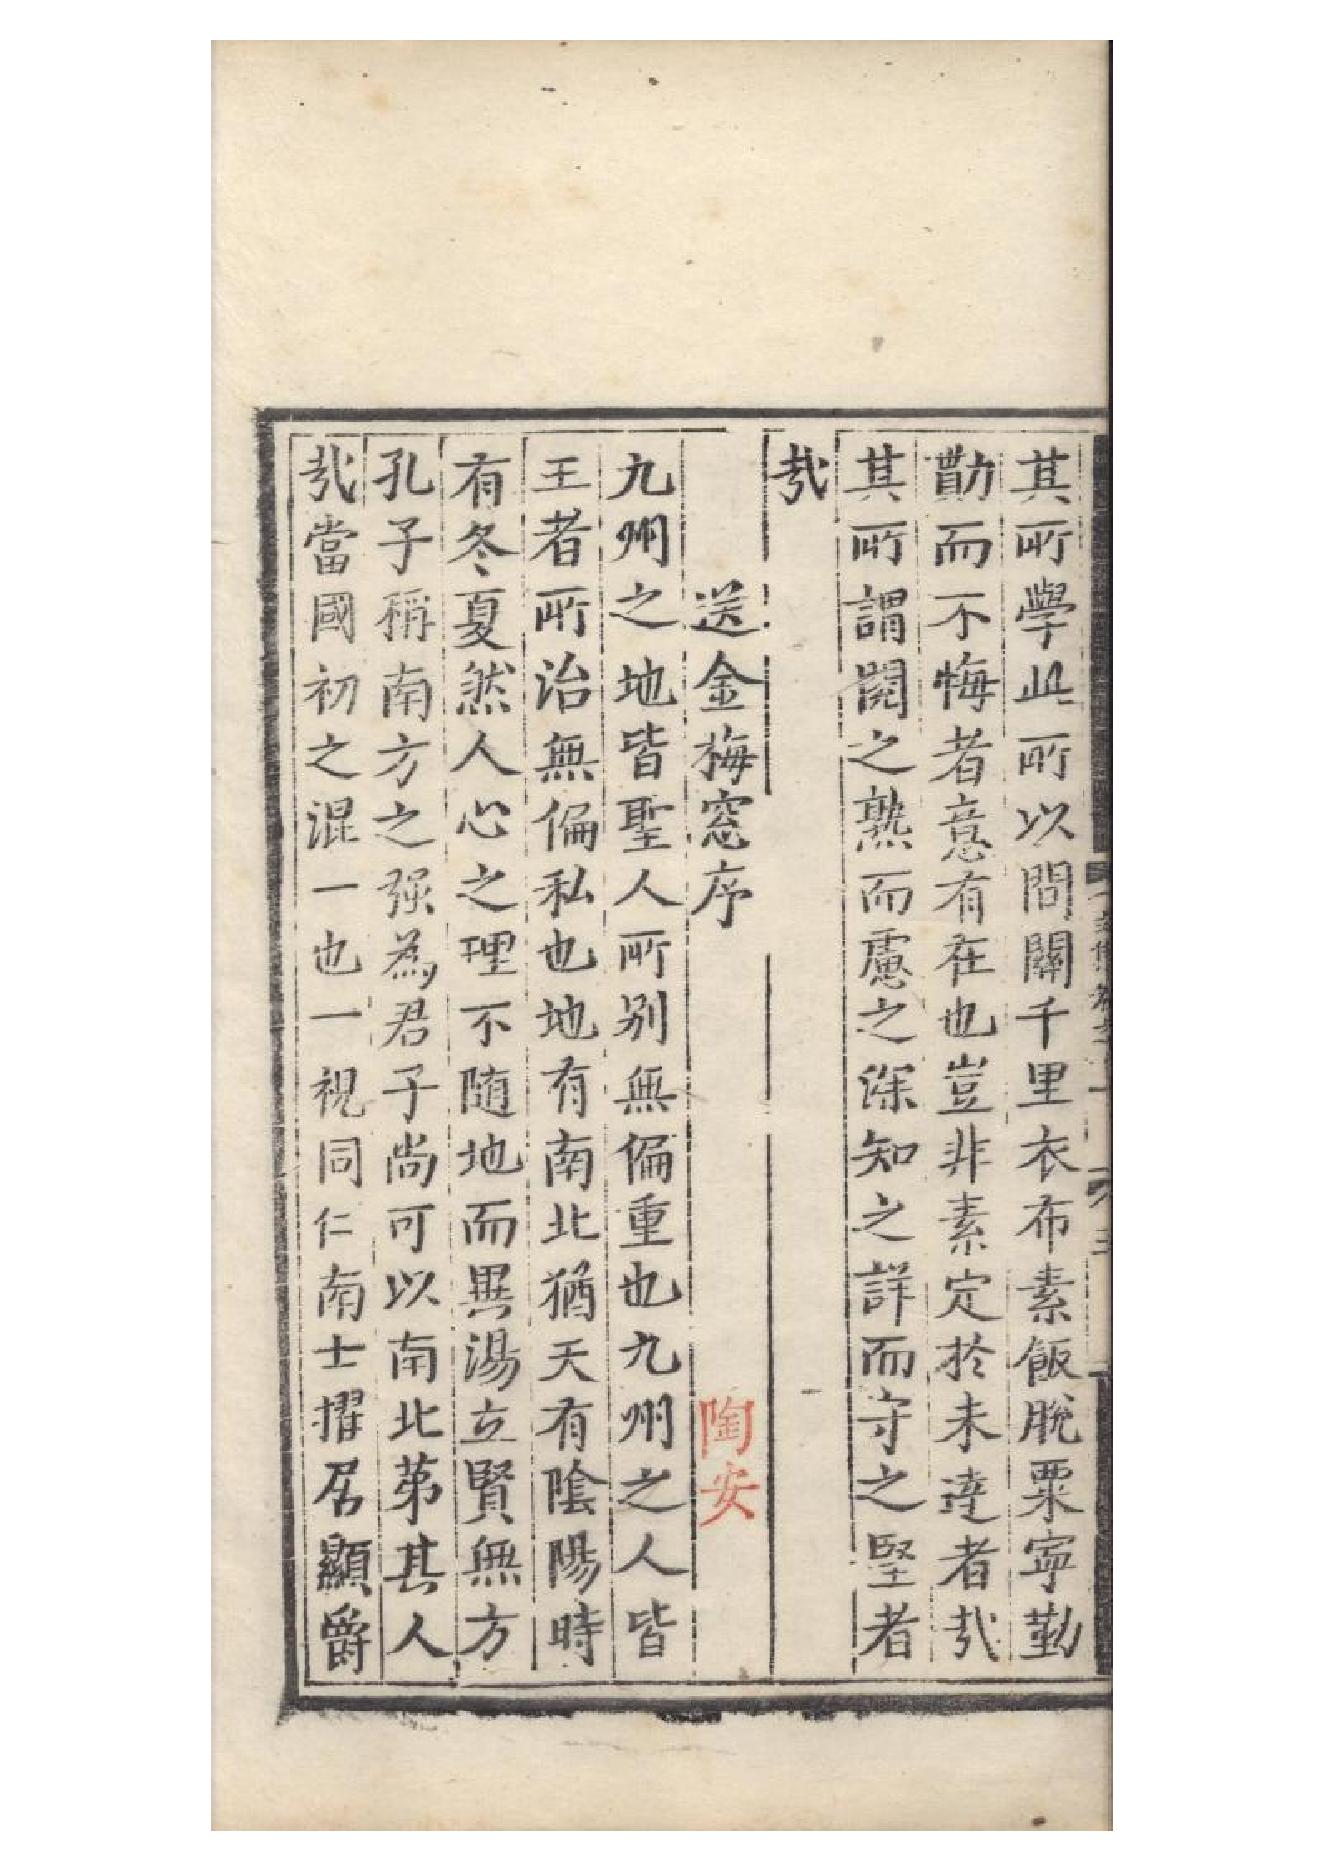 其所學此所以間關千里衣布素飯脫粟寧勤
勩而不悔者意有在也豈非素定於未達者㢤
其所謂閱之熟而慮之深知之詳而守之堅者
㢤
送金梅窓序 陶安
九州之地皆聖人所別無偏重也九州之人皆
王者所治無偏私也地有南北猶天有陰陽時
有冬夏然人心之理不随地而異湯立賢無方
孔子稱南方之强為君子尚可以南北第其人
㢤當國初之混一也一視同仁南士擢居顯爵